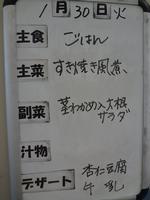 1月30日火
主食 ごはん
主菜 すき焼き風煮
副菜 茎わかめ入大根
サラダ
汁物
デザート 杏仁豆腐
牛乳